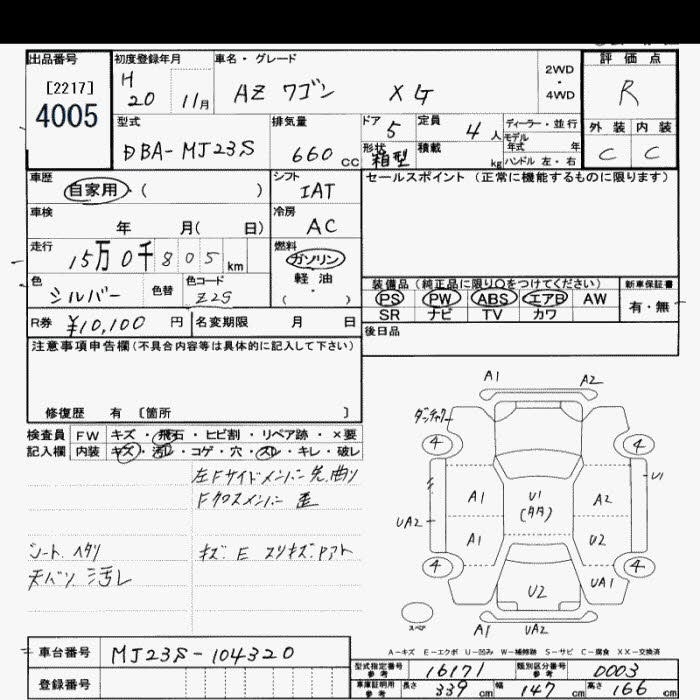 出品番号
[2217]
4005
初度登録年月
H 20 11月
車名・グレード
AZ ワゴン XG
2WD
・
4WD
評価点
R
外装 内装
C C
型式
DBA-MJ23S
排気量
660 cc
ドア 5
定員 4人
ディーラー・並行
モデル年式 年
形状 箱型
積載 kg
ハンドル 左・右
車歴
自家用・( )
シフト
IAT
セールスポイント (正常に機能するものに限ります)
車検
年 月( 日)
冷房
AC
走行
15万0千805km
燃料
ガソリン
軽油
( )
色
シルバー
色替
色コード
Z2S
装備品 (純正品に限り○をつけてください)
PS PW ABS エアB AW
SR ナビ TV カワ
新車保証書
有・無
R券 ¥10,100 円
名変期限 月 日
後日品
注意事項申告欄(不具合内容等は具体的に記入して下さい)
修復歴 有 〔箇所 〕
検査員 FW キズ・飛石・ヒビ割・リペア跡・×要
記入欄 内装 キズ・汚レ・コゲ・穴・スレ・キレ・破レ
左Fサイドメンバー先曲り
Fクロスメンバー 歪
シート ヘタリ
天バリ 汚レ
キズ E スリキズ Pアト
A1 A2
4 4
U1
A1 U1 A2
UA2
A1 U2
4 4
UA1
U2
スペア
A1 UA2
A-キズ E-エクボ U-凹み W-補修跡 S-サビ C-腐食 XX-交換済
車台番号 MJ23S-104320
登録番号
型式指定番号 参考 16171
類別区分番号 参考 0003
車庫証明用 参考 長さ 339 cm 幅 147 cm 高さ 166 cm